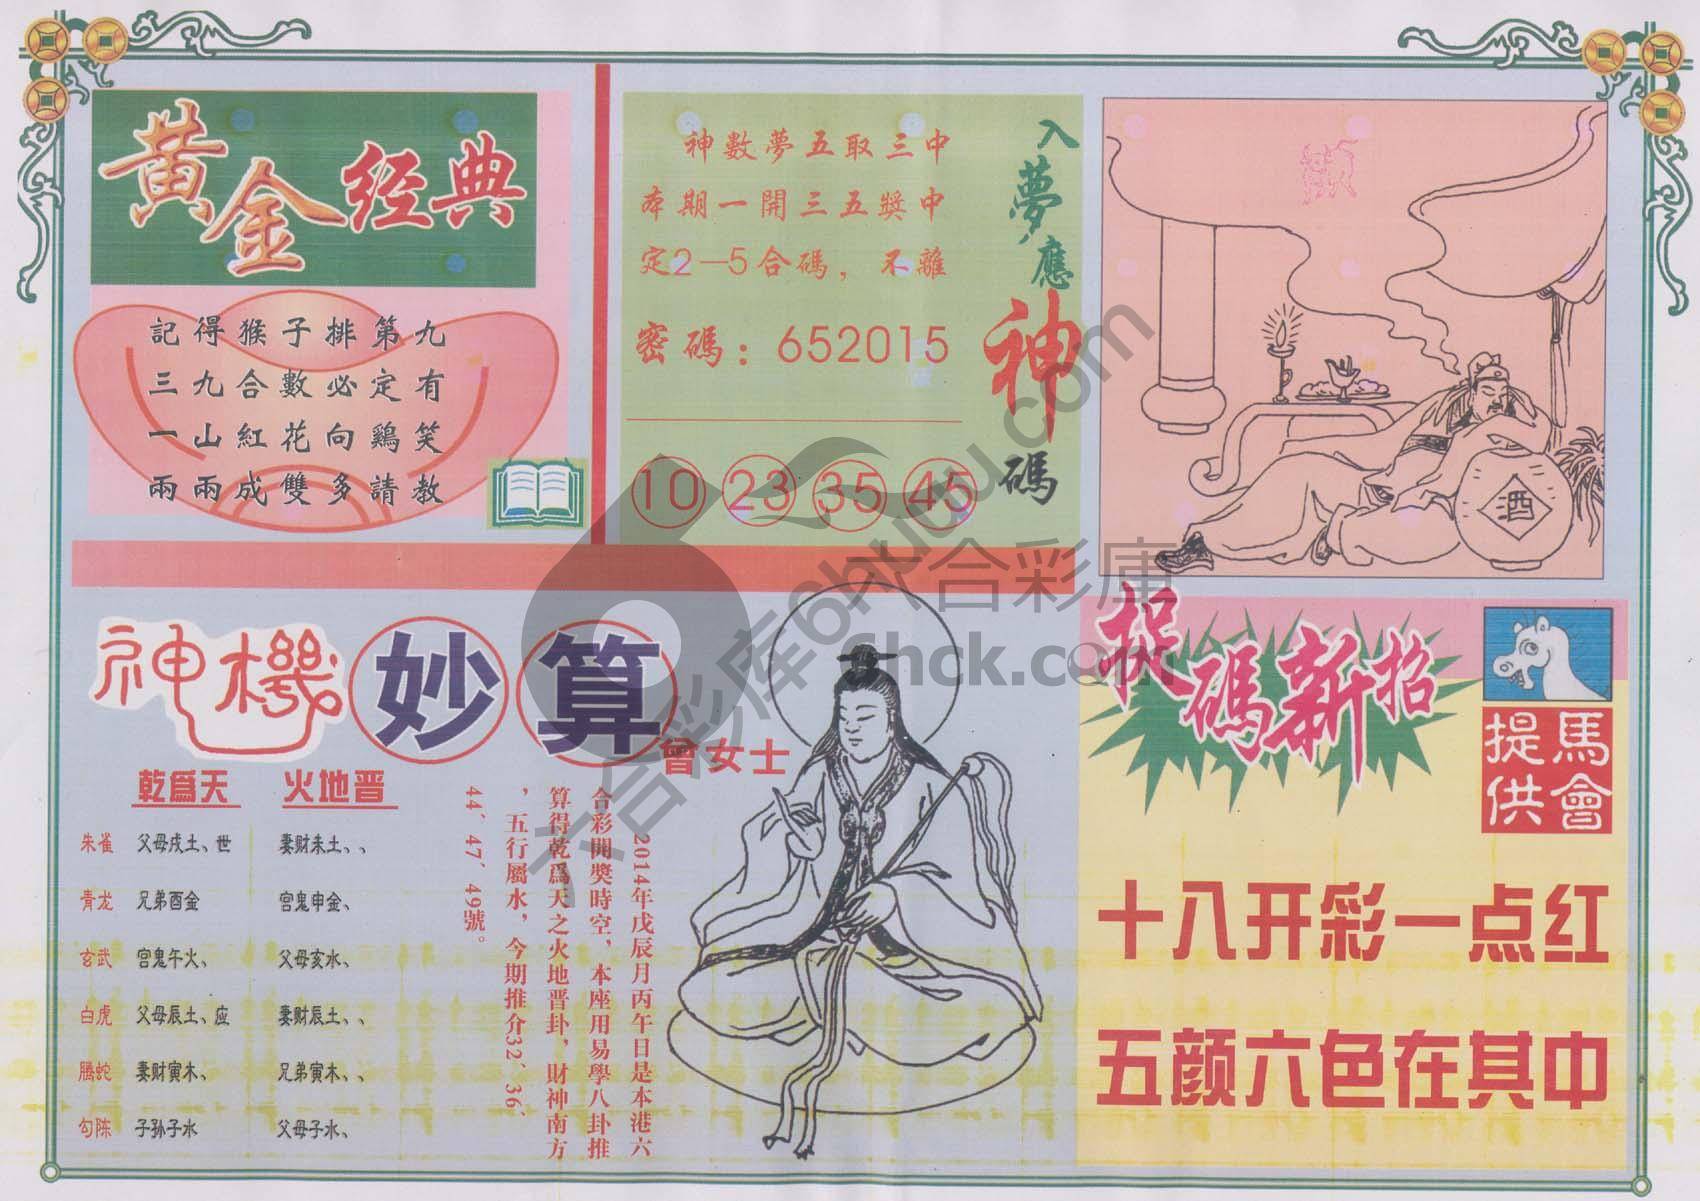 黄金经典
記得猴子排第九
三九合數必定有
一山紅花向鷄笑
兩兩成雙多請教
神數夢五取三中
本期一開三五獎中
定2—5合碼，不離
密碼：652015
10 23 35 45
入夢應神碼
酒
神機妙算
曾女士
乾爲天 火地晋
朱雀 父母戌土、世 妻财未土、、
青龙 兄弟酉金 官鬼申金、
玄武 官鬼午火、 父母亥水、
白虎 父母辰土、应 妻财辰土、、
腾蛇 妻财寅木、 兄弟寅木、、
勾陈 子孙子水 父母子水、
2014年戊辰月丙午日是本港六
合彩開獎時空，本座用易學八卦推
算得乾爲天之火地晋卦，財神南方
，五行屬水，今期推介32、36、
44、47、49號。
捉碼新招
馬會提供
十八开彩一点红
五颜六色在其中
六合彩库6huku.com
六合彩庫
6hck.com